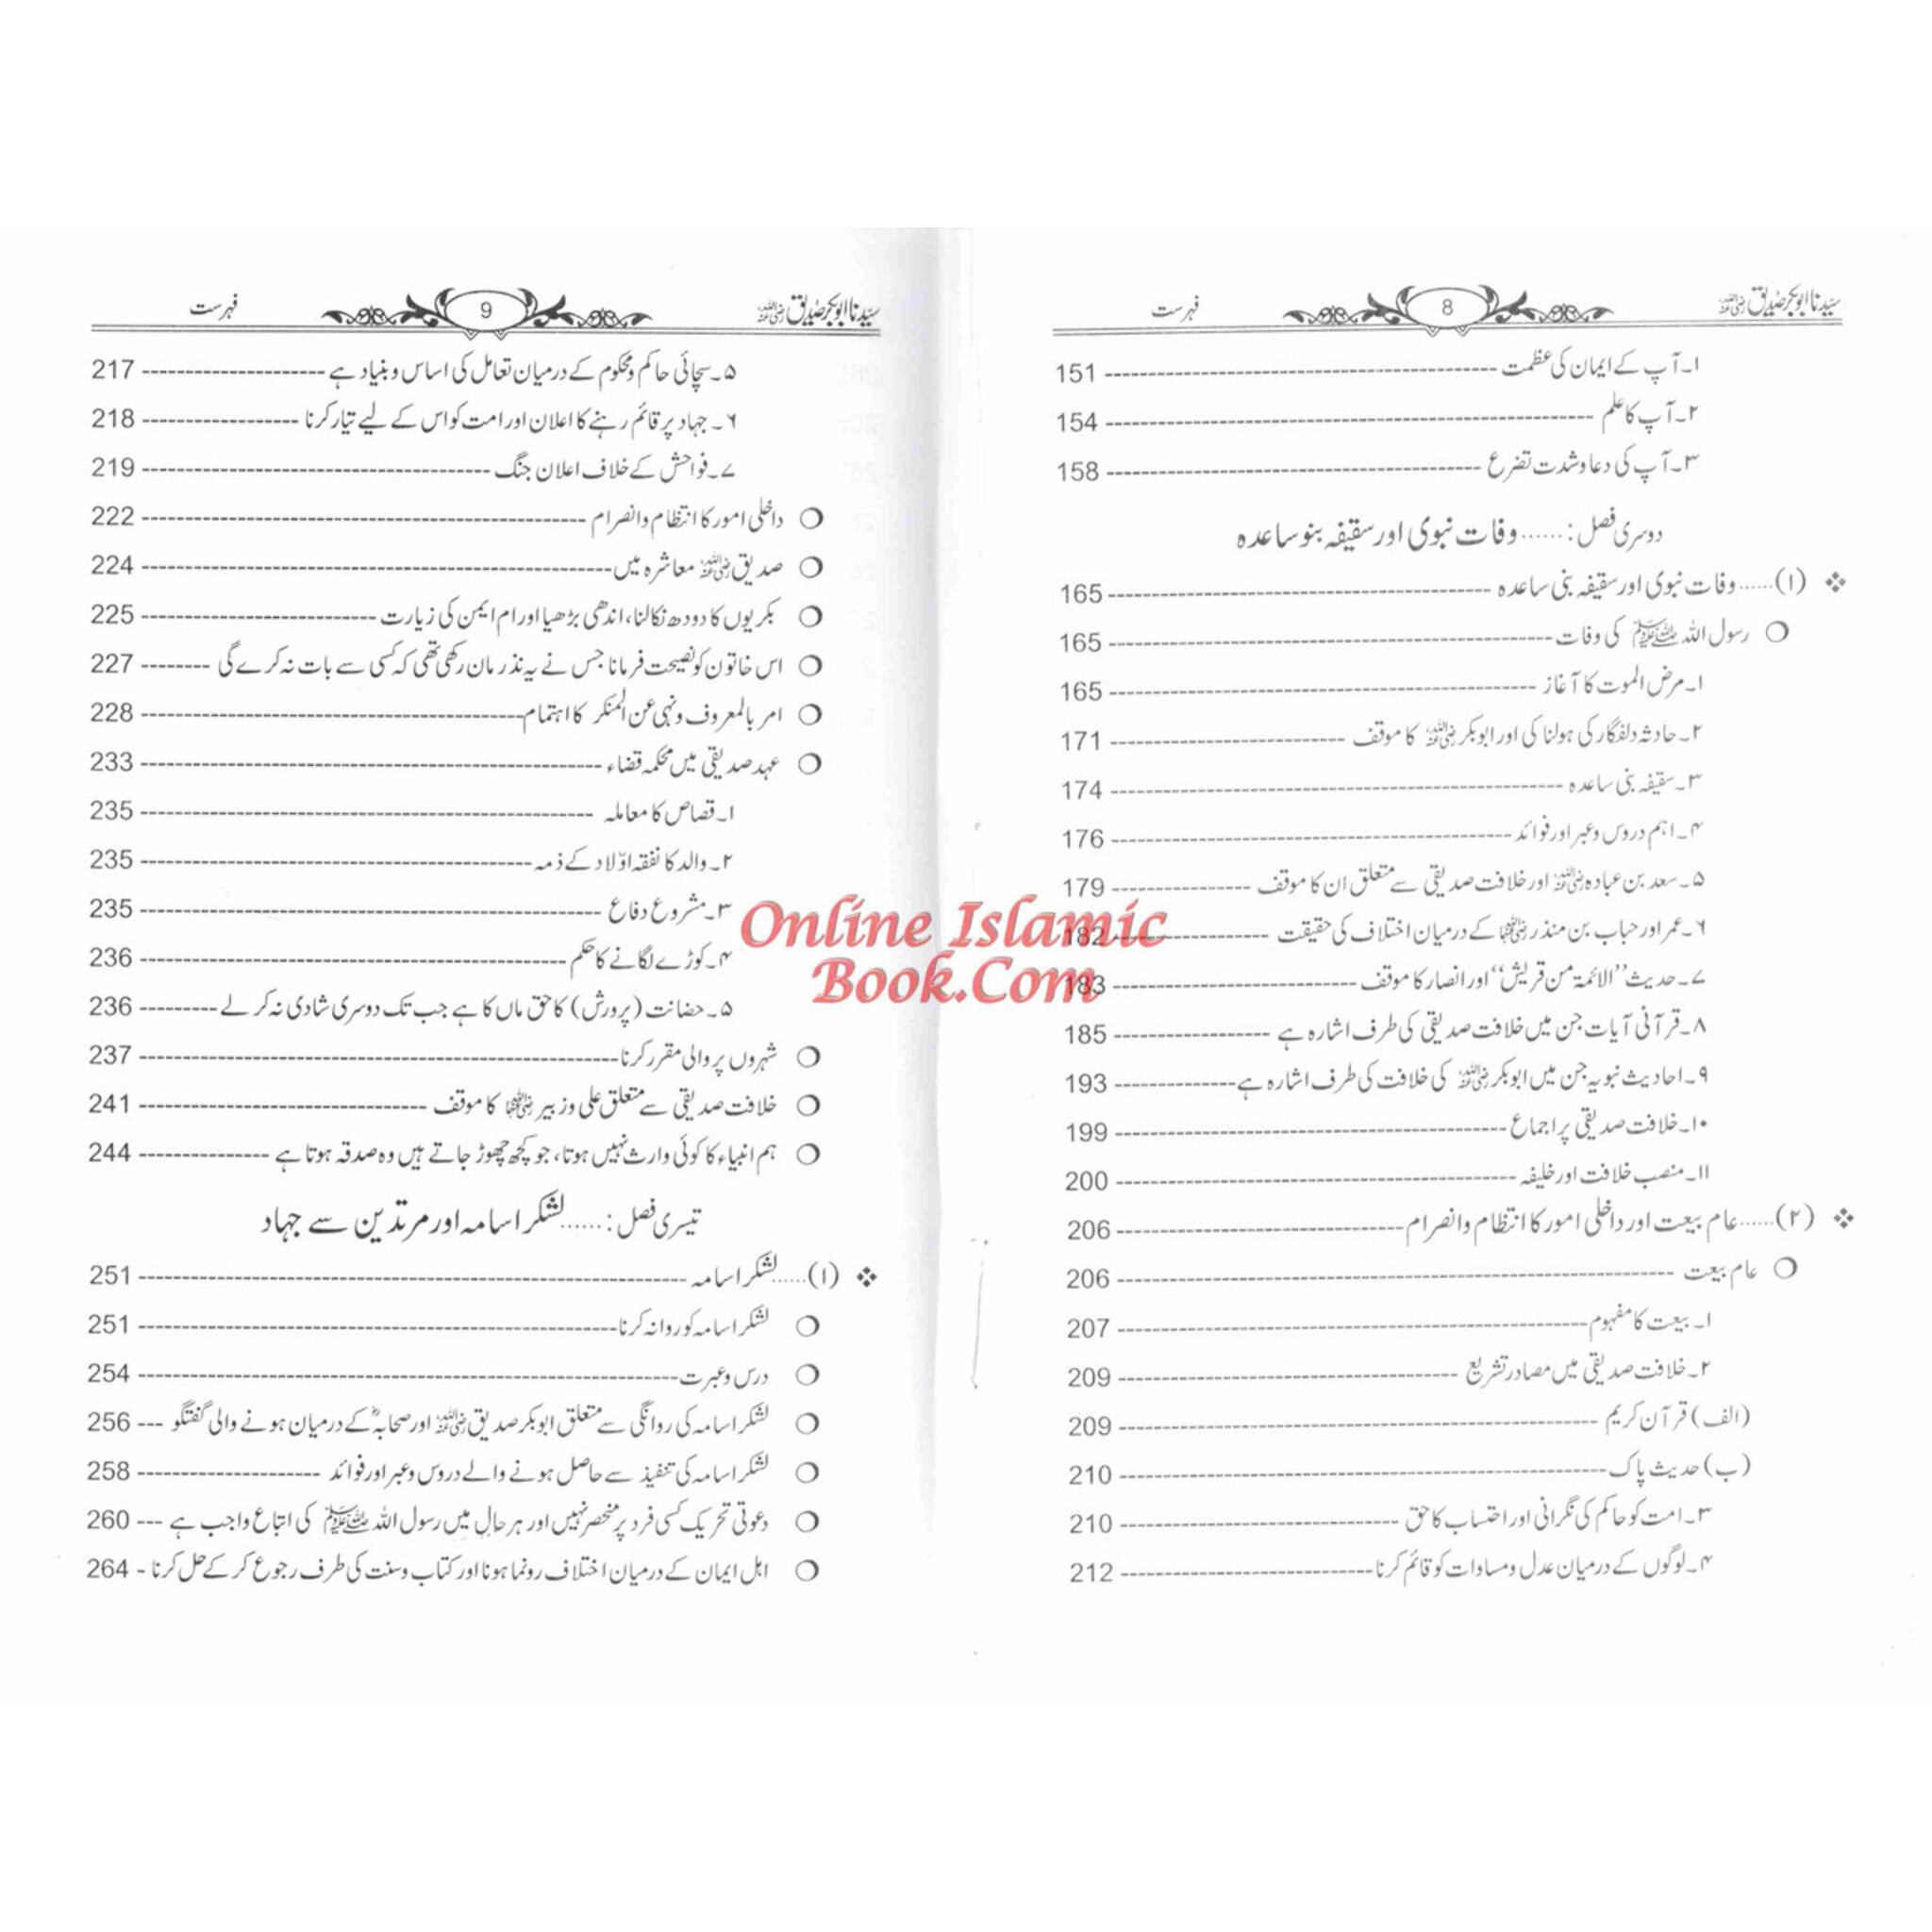 سیّدنا ابوبکر صدیق رضی اللہ عنہ 8 فہرست
۱۔ آپ کے ایمان کی عظمت 151
۲۔ آپ کا علم 154
۳۔ آپ کی دعا و شدت تضرع 158
دوسری فصل: ...... وفات نبوی اور سقیفہ بنو ساعدہ
(۱) ...... وفات نبوی اور سقیفہ بنی ساعدہ 165
رسول اللہ ﷺ کی وفات 165
۱۔ مرض الموت کا آغاز 165
۲۔ حادثہ دلفگار کی ہولناکی اور ابوبکر رضی اللہ عنہ کا موقف 171
۳۔ سقیفہ بنی ساعدہ 174
۴۔ اہم دروس و عبر اور فوائد 176
۵۔ سعد بن عبادہ رضی اللہ عنہ اور خلافت صدیقی سے متعلق ان کا موقف 179
۶۔ عمر اور حباب بن منذر رضی اللہ عنہما کے درمیان اختلاف کی حقیقت 182
۷۔ حدیث ”الائمۃ من قریش“ اور انصار کا موقف 183
۸۔ قرآنی آیات جن میں خلافت صدیقی کی طرف اشارہ ہے 185
۹۔ احادیث نبویہ جن میں ابوبکر رضی اللہ عنہ کی خلافت کی طرف اشارہ ہے 193
۱۰۔ خلافت صدیقی پر اجماع 199
۱۱۔ منصب خلافت اور خلیفہ 200
(۲) ...... عام بیعت اور داخلی امور کا انتظام وانصرام 206
عام بیعت 206
۱۔ بیعت کا مفہوم 207
۲۔ خلافت صدیقی میں مصادر تشریع 209
(الف) قرآن کریم 209
(ب) حدیث پاک 210
۳۔ امت کو حاکم کی نگرانی اور احتساب کا حق 210
۴۔ لوگوں کے درمیان عدل و مساوات کو قائم کرنا 212
سیّدنا ابوبکر صدیق رضی اللہ عنہ 9 فہرست
۵۔ سچائی حاکم و محکوم کے درمیان تعامل کی اساس و بنیاد ہے 217
۶۔ جہاد پر قائم رہنے کا اعلان اور امت کو اس کے لیے تیار کرنا 218
۷۔ فواحش کے خلاف اعلان جنگ 219
داخلی امور کا انتظام وانصرام 222
صدیق رضی اللہ عنہ معاشرہ میں 224
بکریوں کا دودھ نکالنا، اندھی بڑھیا اور ام ایمن کی زیارت 225
اس خاتون کو نصیحت فرمانا جس نے یہ نذر مان رکھی تھی کہ کسی سے بات نہ کرے گی 227
امر بالمعروف و نہی عن المنکر کا اہتمام 228
عہد صدیقی میں محکمہ قضاء 233
۱۔ قصاص کا معاملہ 235
۲۔ والد کا نفقہ اولاد کے ذمہ 235
۳۔ مشروع دفاع 235
۴۔ کوڑے لگانے کا حکم 236
۵۔ حضانت (پرورش) کا حق ماں کا ہے جب تک دوسری شادی نہ کر لے 236
شہروں پر والی مقرر کرنا 237
خلافت صدیقی سے متعلق علی و زبیر رضی اللہ عنہما کا موقف 241
ہم انبیاء کا کوئی وارث نہیں ہوتا، جو کچھ چھوڑ جاتے ہیں وہ صدقہ ہوتا ہے 244
تیسری فصل: ...... لشکر اسامہ اور مرتدین سے جہاد
(۱) ...... لشکر اسامہ 251
لشکر اسامہ کو روانہ کرنا 251
درس و عبرت 254
لشکر اسامہ کی روانگی سے متعلق ابوبکر صدیق رضی اللہ عنہ اور صحابہؓ کے درمیان ہونے والی گفتگو 256
لشکر اسامہ کی تنفیذ سے حاصل ہونے والے دروس و عبر اور فوائد 258
دعوتی تحریک کسی فرد پر منحصر نہیں اور ہر حال میں رسول اللہ ﷺ کی اتباع واجب ہے 260
اہل ایمان کے درمیان اختلاف رونما ہونا اور کتاب و سنت کی طرف رجوع کر کے حل کرنا 264
Online Islamic
Book.Com